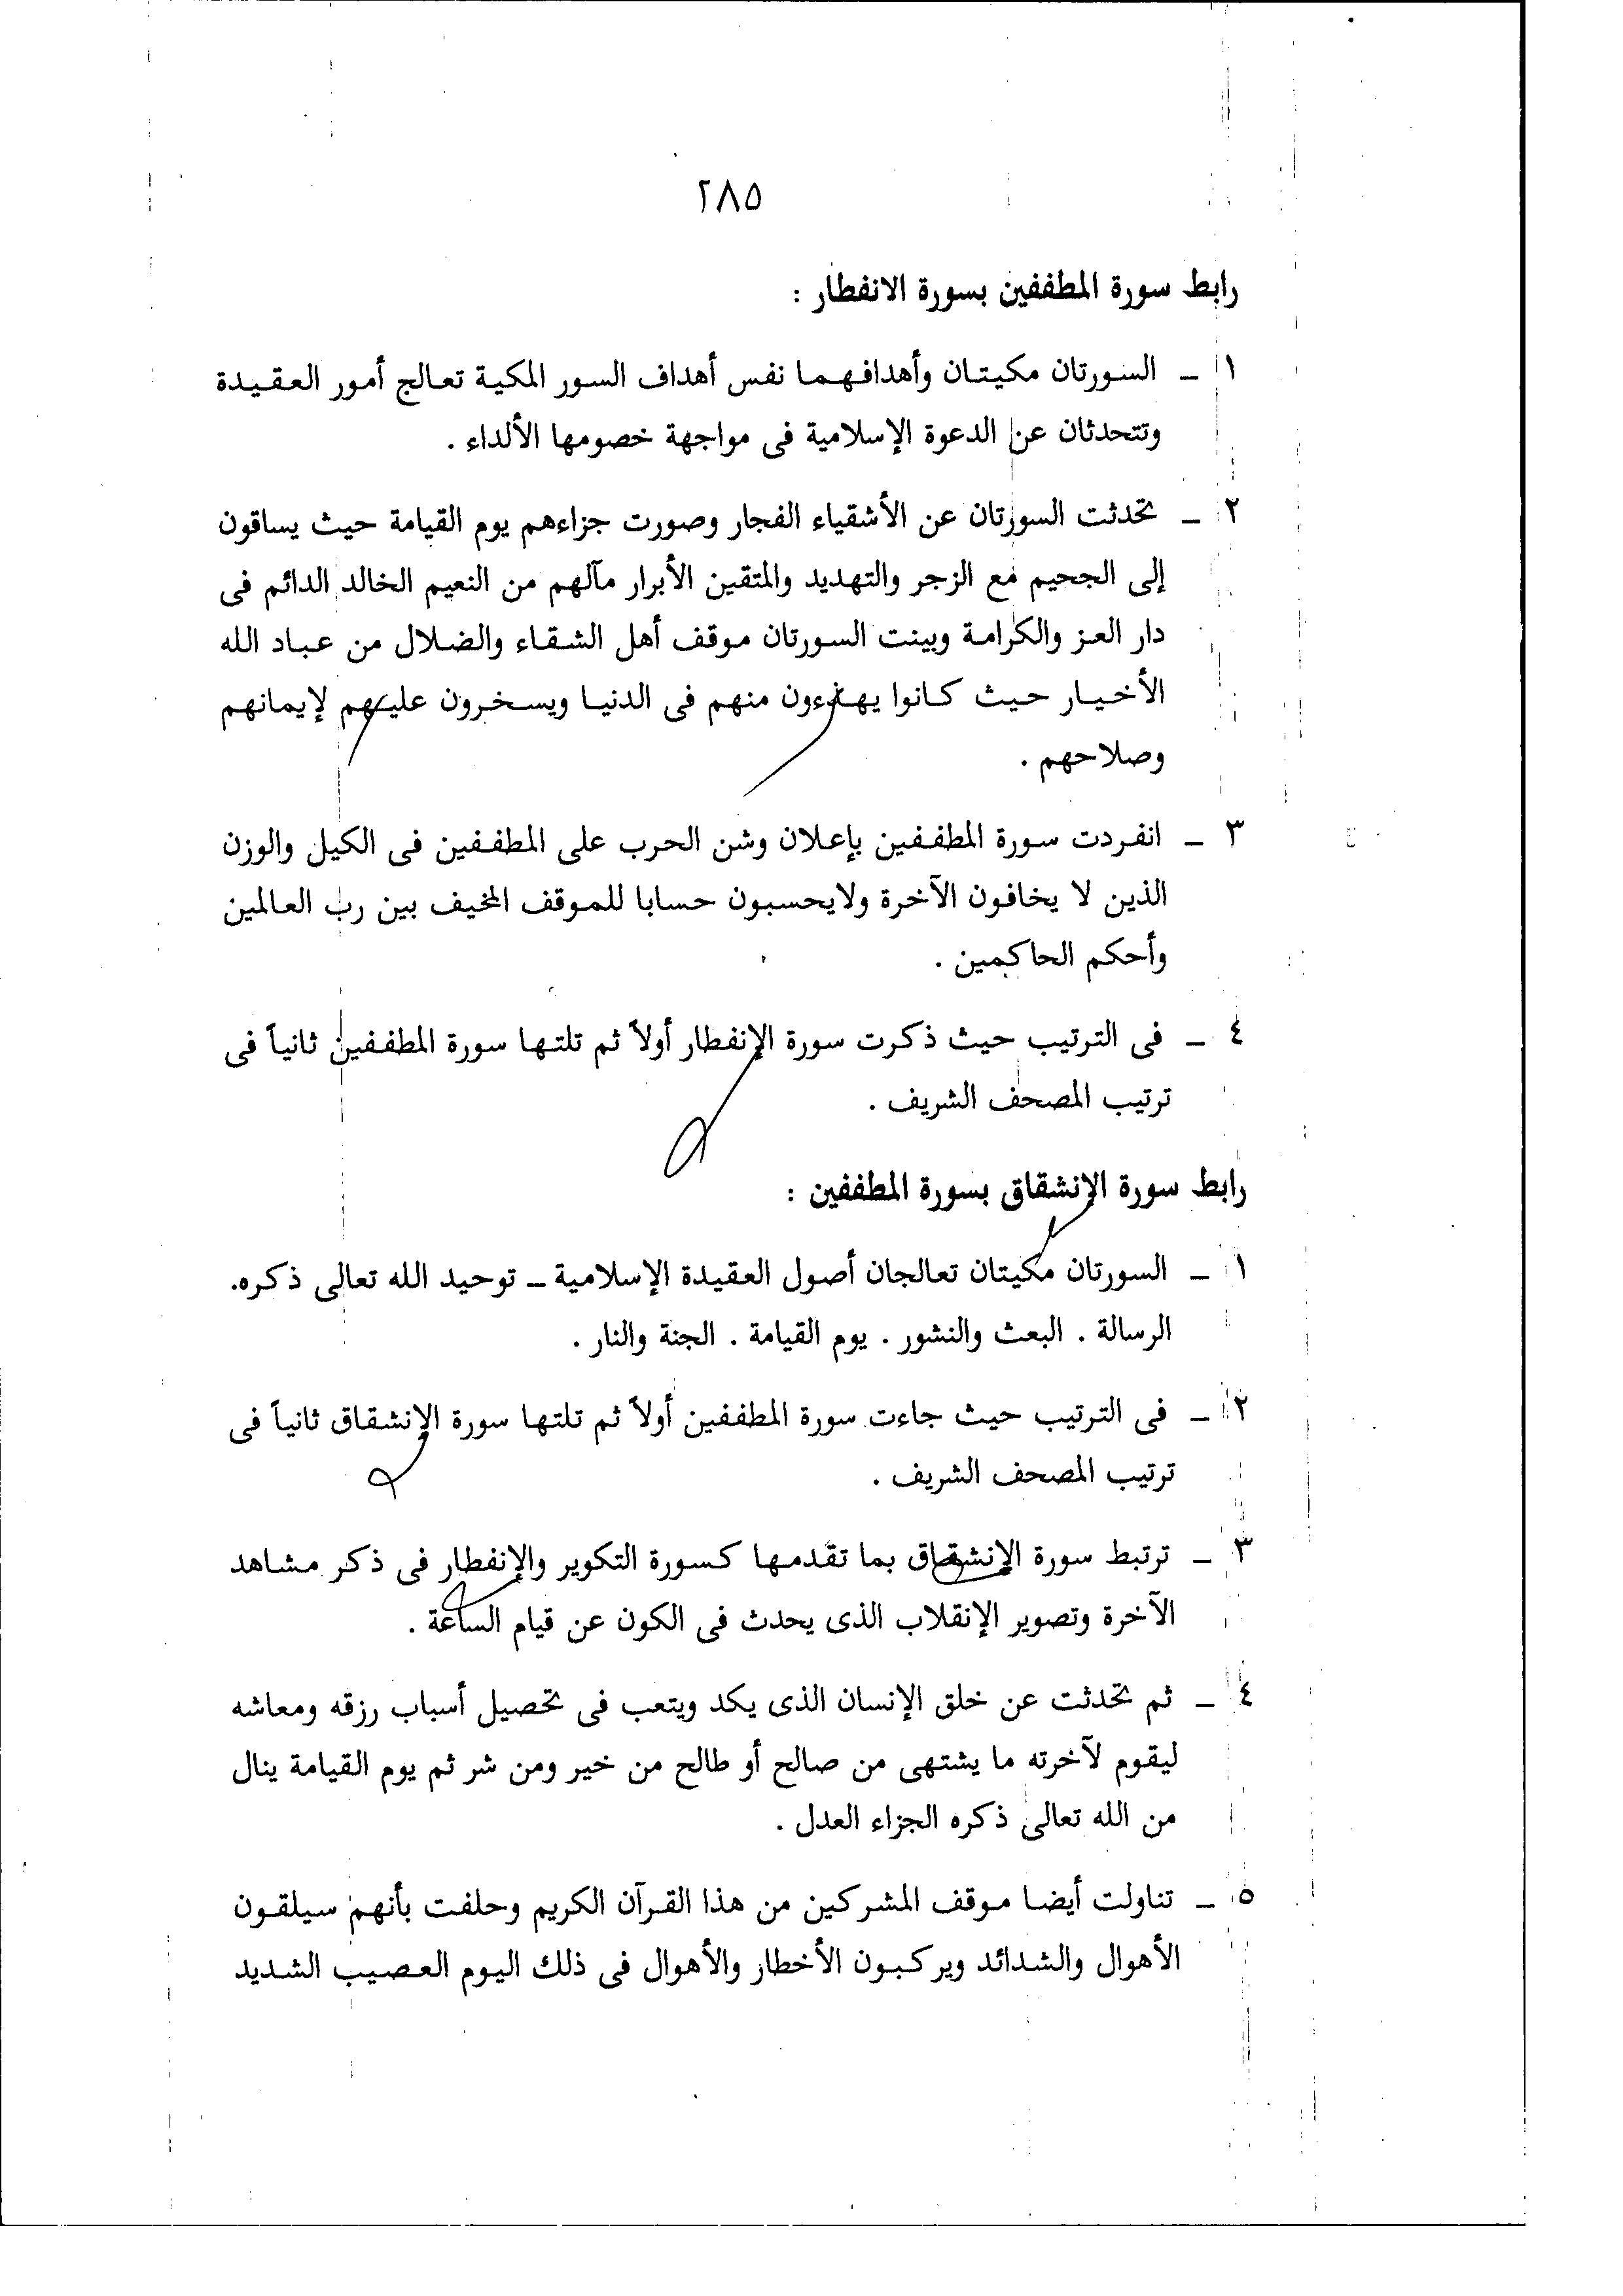 ٢٨٥
رابط سورة المطففين بسورة الانفطار :
١ ـ السورتان مكيتان وأهدافهما نفس أهداف السور المكية تعالج أمور العقيدة
وتتحدثان عن الدعوة الإسلامية فى مواجهة خصومها الألداء .
٢ ـ تحدثت السورتان عن الأشقياء الفجار وصورت جزاءهم يوم القيامة حيث يساقون
إلى الجحيم مع الزجر والتهديد والمتقين الأبرار مآلهم من النعيم الخالد الدائم فى
دار العز والكرامة وبينت السورتان موقف أهل الشقاء والضلال من عباد الله
الأخيار حيث كانوا يهزءون منهم فى الدنيا ويسخرون عليهم لإيمانهم
وصلاحهم .
٣ ـ انفردت سورة المطففين بإعلان وشن الحرب على المطففين فى الكيل والوزن
الذين لا يخافون الآخرة ولايحسبون حسابا للموقف المخيف بين رب العالمين
وأحكم الحاكمين .
٤ ـ فى الترتيب حيث ذكرت سورة الإنفطار أولاً ثم تلتها سورة المطففين ثانياً فى
ترتيب المصحف الشريف .
رابط سورة الإنشقاق بسورة المطففين :
١ ـ السورتان مكيتان تعالجان أصول العقيدة الإسلامية ـ توحيد الله تعالى ذكره.
الرسالة . البعث والنشور . يوم القيامة . الجنة والنار .
٢ ـ فى الترتيب حيث جاءت سورة المطففين أولاً ثم تلتها سورة الإنشقاق ثانياً فى
ترتيب المصحف الشريف .
٣ ـ ترتبط سورة الإنشقاق بما تقدمها كسورة التكوير والإنفطار فى ذكر مشاهد
الآخرة وتصوير الإنقلاب الذى يحدث فى الكون عن قيام الساعة .
٤ ـ ثم تحدثت عن خلق الإنسان الذى يكد ويتعب فى تحصيل أسباب رزقه ومعاشه
ليقوم لآخرته ما يشتهى من صالح أو طالح من خير ومن شر ثم يوم القيامة ينال
من الله تعالى ذكره الجزاء العدل .
٥ ـ تناولت أيضا موقف المشركين من هذا القرآن الكريم وحلفت بأنهم سيلقون
الأهوال والشدائد ويركبون الأخطار والأهوال فى ذلك اليوم العصيب الشديد